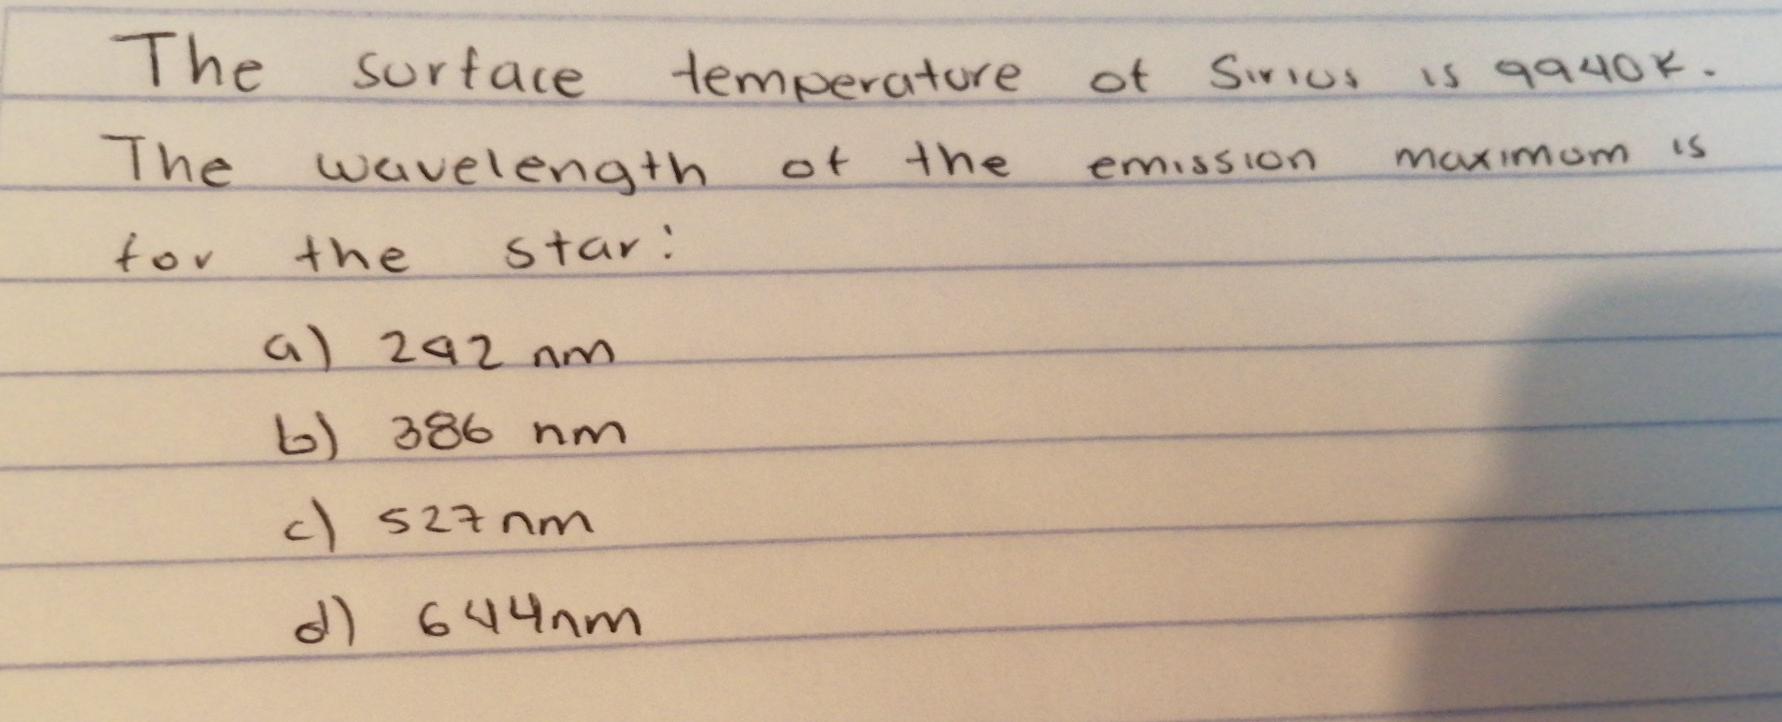 The surface temperature of Sirius is 9940K.
The wavelength of the emission maximum is
for the star:
a) 292 nm
b) 386 nm
c) 527nm
d) 644nm